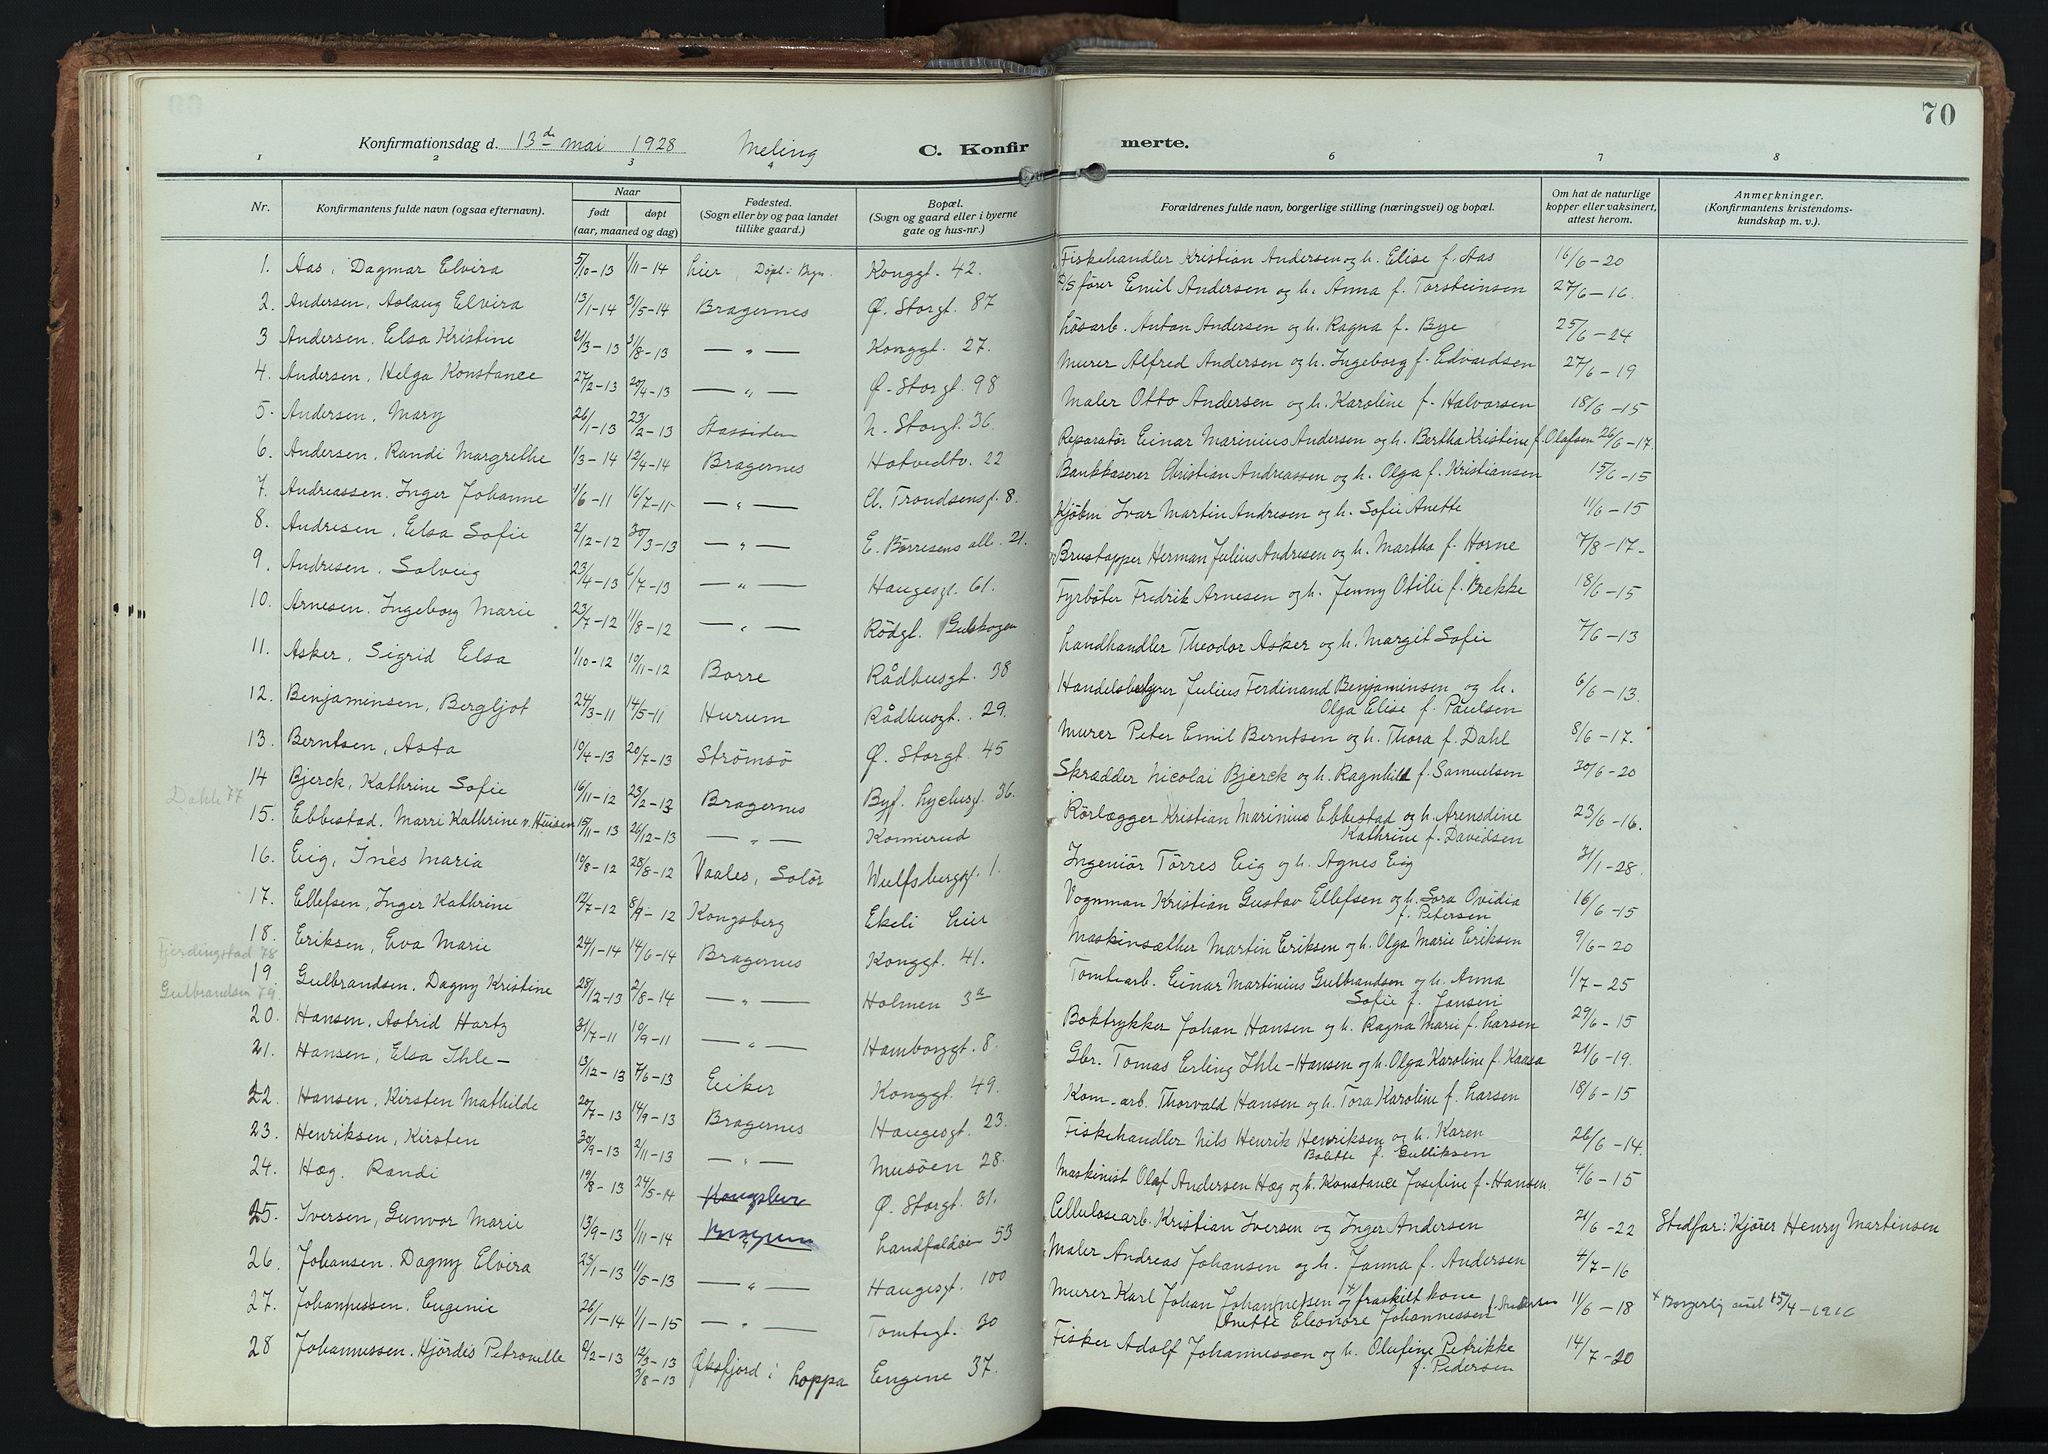 70
Konfirmationsdag d. 13de mai 1928 Meling C. Konfirmerte.
1 2 3 4 6 7 8
Nr. Konfirmantens fulde navn (ogsaa efternavn). Naar født døpt (aar, maaned og dag) Fødested. (Sogn eller by og paa landet tillike gaard.) Bopæl. (Sogn og gaard eller i byerne gate og hus-nr.) Forældrenes fulde navn, borgerlige stilling (næringsvei) og bopæl. Om hat de naturlige kopper eller vaksinert, attest herom. Anmerkninger. (Konfirmantens kristendomskundskap m. v.).
1. Aas, Dagmar Elvira 5/10-13 1/11-14 Lier, Døpt i Bgn. Konggt. 42. Fiskehandler Kristian Andersen og h. Elise f. Aas 16/6-20
2. Andersen, Aslaug Elvira 13/1-14 3/5-14 Bragernes Ø. Storgt. 87 D/S fører Emil Andersen og h. Anna f. Torsteinsen 27/6-16.
3 Andersen. Elsa Kristine 21/3-13 31/8-13 —„— Konggt. 27. Løsarb. Anton Andersen og h. Ragna f. Bye 25/6-24
4. Andersen, Helga Konstance 27/2-13 20/4-13 —„— Ø. Storgt. 98 Murer Alfred Andersen og h. Ingeborg f. Edvardsen 27/6-19
5. Andersen, Mary 26/1-13 23/2-13 Aassiden N. Storgt. 36 Maler Otto Andersen og h. Karoline f. Halvorsen 18/6-15
6. Andersen, Randi Margrethe 1/3-14 12/4-14 Bragernes Hotvedtv. 22 Reparatør Einar Marinius Andersen og h. Bertha Kristine f. Olafsen 26/6-17.
7. Andreassen. Inger Johanne 1/6-11 16/7-11 —„— Cl. Trondsensgt. 8. Bankkaserer Christian Andreassen og h. Olga f. Kristiansen 15/6-15
8. Andresen, Elsa Sofie 2/12-12 30/3-13 —„— E. Børresens alle. 21. Kjøbm Ivar Martin Andresen og h. Sofie Anette 11/6-15
9. Andresen. Solveig 23/4-13 6/7-13 —„— Haugesgt. 61. Brustapper Herman Julius Andresen og h. Martha f. Horne 7/8-17-
10. Arnesen. Ingeborg Marie 23/7-12 11/8-12 —„— Rødgt. Gulskogen Fyrbøter Fredrik Arnesen og h. Jenny Otilie f. Brekke 18/6-15
11. Asker, Sigrid Elsa 1/10-12 10/11-12 Borre Rådhusgt. 38 Landhandler Theodor Asker og h. Margit Sofie 7/6-13
12. Benjaminsen, Bergljot 24/3-11 14/5-11 Hurum Rådhusgt. 29. Handelsbestyrer Julius Ferdinand Benjaminsen og h. 6/6-13.
Olga Elise f. Paulsen
13. Berntsen, Asta 10/4-13 20/7-13 Strømsø Ø. Storgt. 45 Murer Peter Emil Berntsen og h. Thora f. Dahl 8/6-17.
14 Bjerck, Kathrine Sofie 16/11-12 23/2-13 Bragernes Byf. Lychesgt. 36. Skrædder Nicolai Bjerck og h. Ragnhild f. Samuelsen 30/6-20
Dahle 77
15. Ebbestad. Marri Kathrine v. Huisen 15/11-13 26/12-13 —„— Konnerud Rørlægger Kristian Marinius Ebbestad og h. Arensdine 23/6-16.
Kathrine f. Davidsen
16. Eig, Inès Maria 10/8-12 28/8-12 Vaaler, Solør Wulfsbergsgt. 1. Ingeniør Tørres Eig og h. Agnes Eig 31/1-28.
17. Ellefsen, Inger Kathrine 12/7-12 8/9-12 Kongsberg Ekeli Lier Vognman Kristian Gustav Ellefsen og h. Sora Ovidia 16/6-15
f. Petersen
18. Eriksen, Eva Marie 24/1-14 14/6-14 Bragernes Konggt. 41. Maskinsætter Martin Eriksen og h. Olga Marie Eriksen 9/6-20
Fjerdingstad 78
19. Gulbrandsen. Dagny Kristine 28/12-13 2/8-14 —„— Holmen 3a Tomtearb. Einar Martinius Gulbrandsen og h. Anna 1/7-25
Sofie f. Jansen
Gulbrandsen 79.
20. Hansen. Astrid Hartz 31/7-11 10/9-11 —„— Hamborggt. 8. Boktrykker Johan Hansen og h. Ragna Marie f. Larsen 29/6-15
21. Hansen, Elsa Ihle- 13/12-13 7/6-13 Eiker Konggt. 49. Gbr. Tomas Erling Ihle-Hansen og h. Olga Karoline f. Kaasa 21/6-19.
22. Hansen, Kirsten Mathilde 20/7-13 14/9-13 Bragernes Haugesgt. 23. Kom-arb. Thorvald Hansen og h. Tora Karoline f. Larsen 18/6-15
23. Henriksen, Kirsten 30/9-13 2/11-13 —„— Musøen 28. Fiskehandler Nils Henrik Henriksen og h. Karen 26/6-14.
Bolette f. Gulliksen
24. Hæg. Randi 19/8-13 24/5-14 Kongsberg Ø. Storgt. 31. Maskinist Olaf Andersen Hæg og h. Konstance Josefine f. Hansen. 4/6-15
25. Iversen, Gunvor Marie 13/9-13 1/11-14 Landfaldøen 53 Cellulosearb. Kristian Iversen og Inger Andersen 21/6-22 Stedfar: Kjører Henry Martinsen
26. Johansen. Dagny Elvira 23/1-13 11/5-13 —„— Haugesgt. 100 Maler Andreas Johansen og h. Janna f. Andersen 4/7-16
27. Johannessen. Eugenie 26/1-14 1/1-15 —„— Tomtegt. 30 Murer Karl Johan Johannessen og x/ fraskilt kone 11/6-18 x Borgerlig viet 15/4-1916
Anette Eleonore Johannessen f. Andersen
28 Johannessen. Hjördis Petronelle 9/2-13 12/3-13 3/8-13 Øksfjord i Loppa Engene 37. Fisker Adolf Johannessen og h. Olufine Petrikke 14/7-20
f. Pedersen